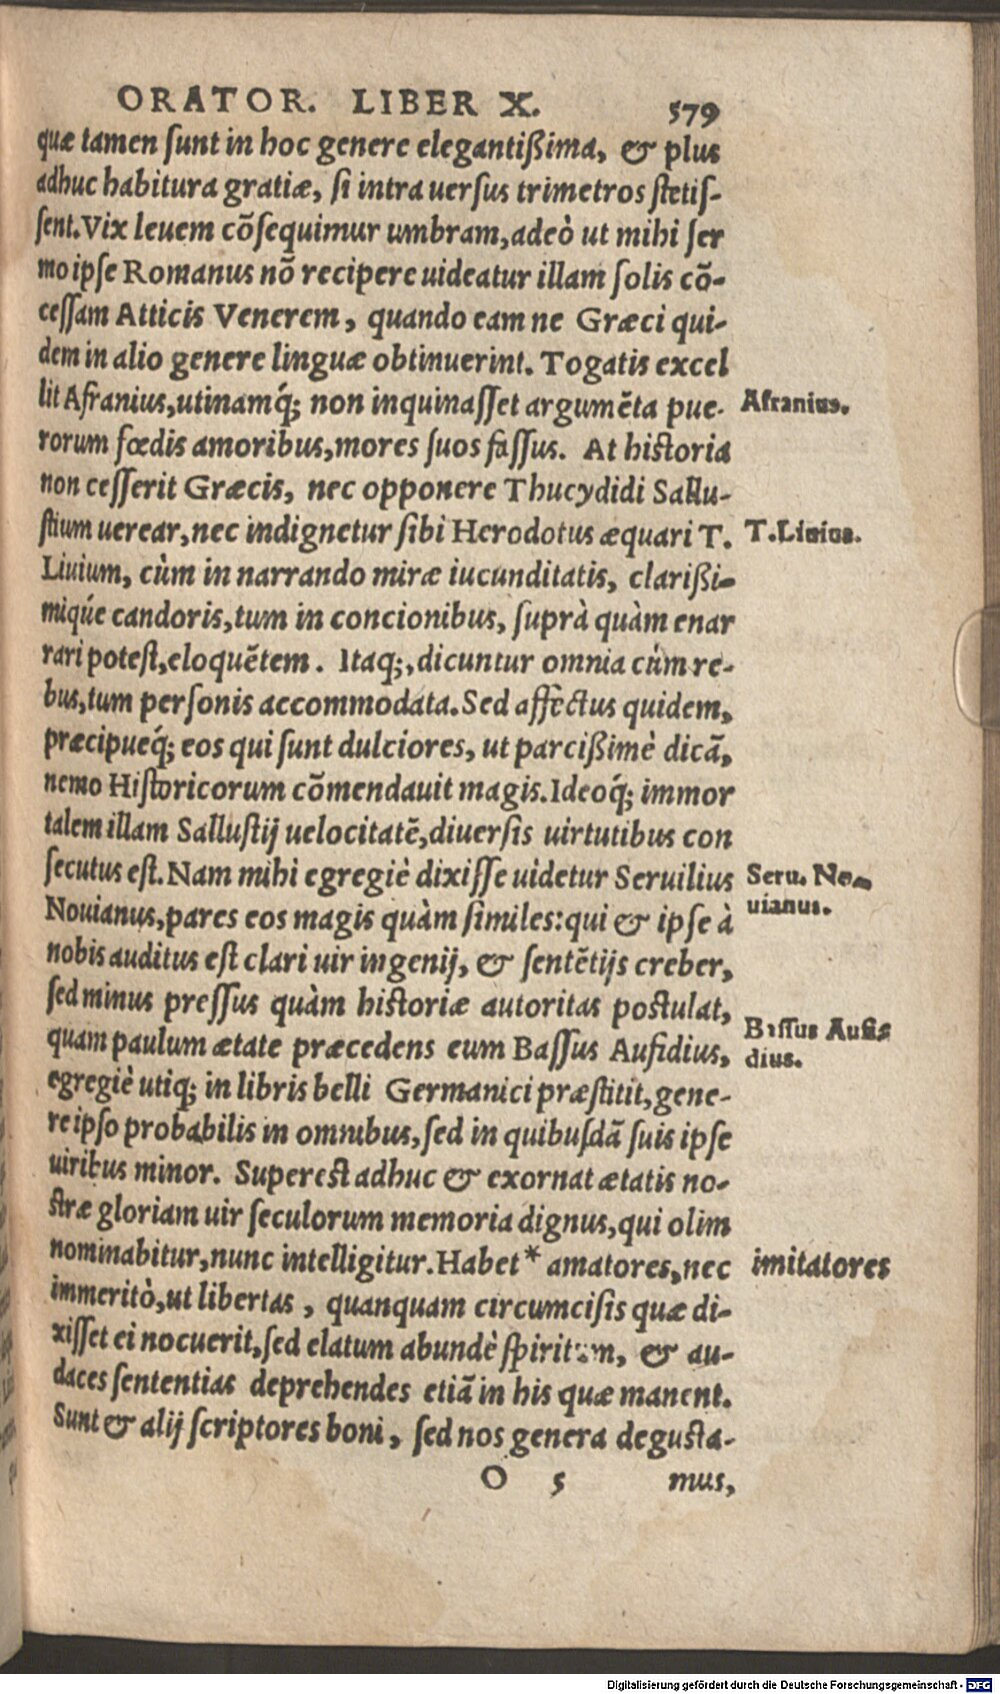 ORATOR. LIBER X. 579
quæ tamen ſunt in hoc genere elegantißima, & plus
adhuc habitura gratiæ, ſi intra uerſus trimetros ſtetiſ-
ſent. Vix leuem cõſequimur umbram, adeò ut mihi ſer
mo ipſe Romanus nõ recipere uideatur illam ſolis cõ-
ceſſam Atticis Venerem, quando eam ne Græci qui-
dem in alio genere linguæ obtinuerint. Togatis excel
lit Afranius, utinamq́; non inquinaſſet argumẽta pue-
Afranius.
rorum fœdis amoribus, mores ſuos faſſus. At hiſtoria
non ceſſerit Græcis, nec opponere Thucydidi Salluſ-
ſtium uerear, nec indignetur ſibi Herodotus æquari T.
T. Liuius.
Liuium, cùm in narrando miræ iucunditatis, clarißi-
miqúe candoris, tum in concionibus, ſuprà quàm enar
rari poteſt, eloquẽtem. Itaq;, dicuntur omnia cùm re-
bus, tum perſonis accommodata. Sed affectus quidem,
præcipueq́; eos qui ſunt dulciores, ut parcißimè dicã,
nemo Hiſtoricorum cõmendauit magis. Ideoq́; immor
talem illam Salluſtij uelocitatẽ, diuerſis uirtutibus con
ſecutus eſt. Nam mihi egregiè dixiſſe uidetur Seruilius
Seru. No-
Nouianus, pares eos magis quàm ſimiles: qui & ipſe à
uianus.
nobis auditus eſt clari uir ingenij, & ſentẽtijs creber,
ſed minus preſſus quàm hiſtoriæ autoritas poſtulat,
Baſſus Aufi-
quam paulum ætate præcedens eum Baſſus Aufidius,
dius.
egregiè utiq; in libris belli Germanici præſtitit, gene-
re ipſo probabilis in omnibus, ſed in quibuſdã ſuis ipſe
uiribus minor. Supereſt adhuc & exornat ætatis no-
ſtræ gloriam uir ſeculorum memoria dignus, qui olim
nominabitur, nunc intelligitur. Habet * amatores, nec
imitatores
immeritò, ut libertas, quanquam circumciſis quæ di-
xiſſet ei nocuerit, ſed elatum abundè ſpiritum, & au-
daces ſententias deprehendes etiã in his quæ manent.
Sunt & alij ſcriptores boni, ſed nos genera deguſta-
O 5 mus,
Digitalisierung gefördert durch die Deutsche Forschungsgemeinschaft - DFG